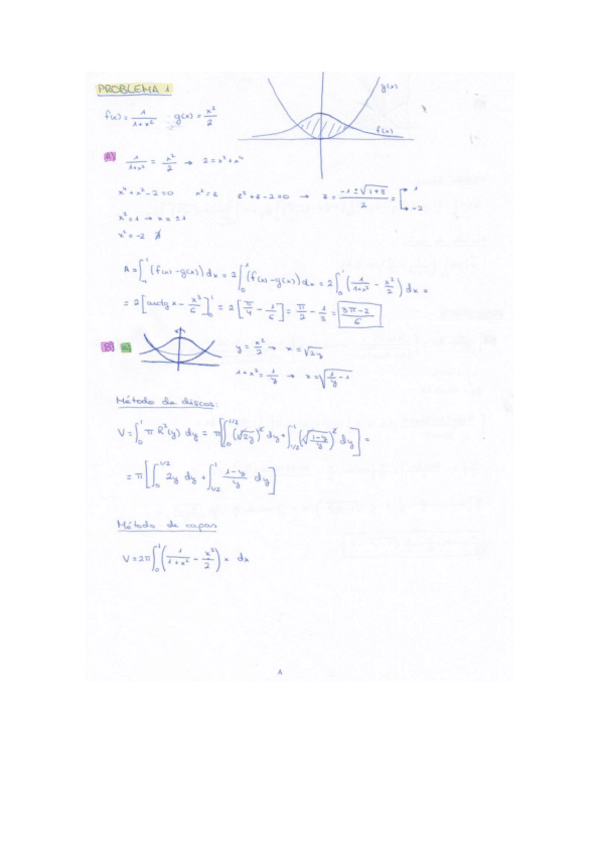 PROBLEMA 1
f(x) = 1/(1+x²)   g(x) = x²/2
g(x)
f(x)
A) 1/(1+x²) = x²/2 → 2 = x²+x⁴
x⁴+x²-2=0   x²=z   z²+z-2=0 → z = (-1±√(1+8))/2 = 1, -2
x²=1 → x=±1
x²=-2 ∄
A = ∫₋₁¹ (f(x)-g(x)) dx = 2∫₀¹ (f(x)-g(x)) dx = 2∫₀¹ (1/(1+x²) - x²/2) dx =
= 2[arctg x - x³/6]₀¹ = 2[π/4 - 1/6] = π/2 - 1/3 = (3π-2)/6
B)
y = x²/2 → x = √(2y)
1+x² = 1/y → x = √(1/y - 1)
Método de discos:
V = ∫₀¹ π R²(y) dy = π[∫₀^(1/2) (√(2y))² dy + ∫_(1/2)^1 (√((1-y)/y))² dy] =
= π[∫₀^(1/2) 2y dy + ∫_(1/2)^1 (1-y)/y dy]
Método de capas
V = 2π∫₀¹ (1/(1+x²) - x²/2) x dx
1